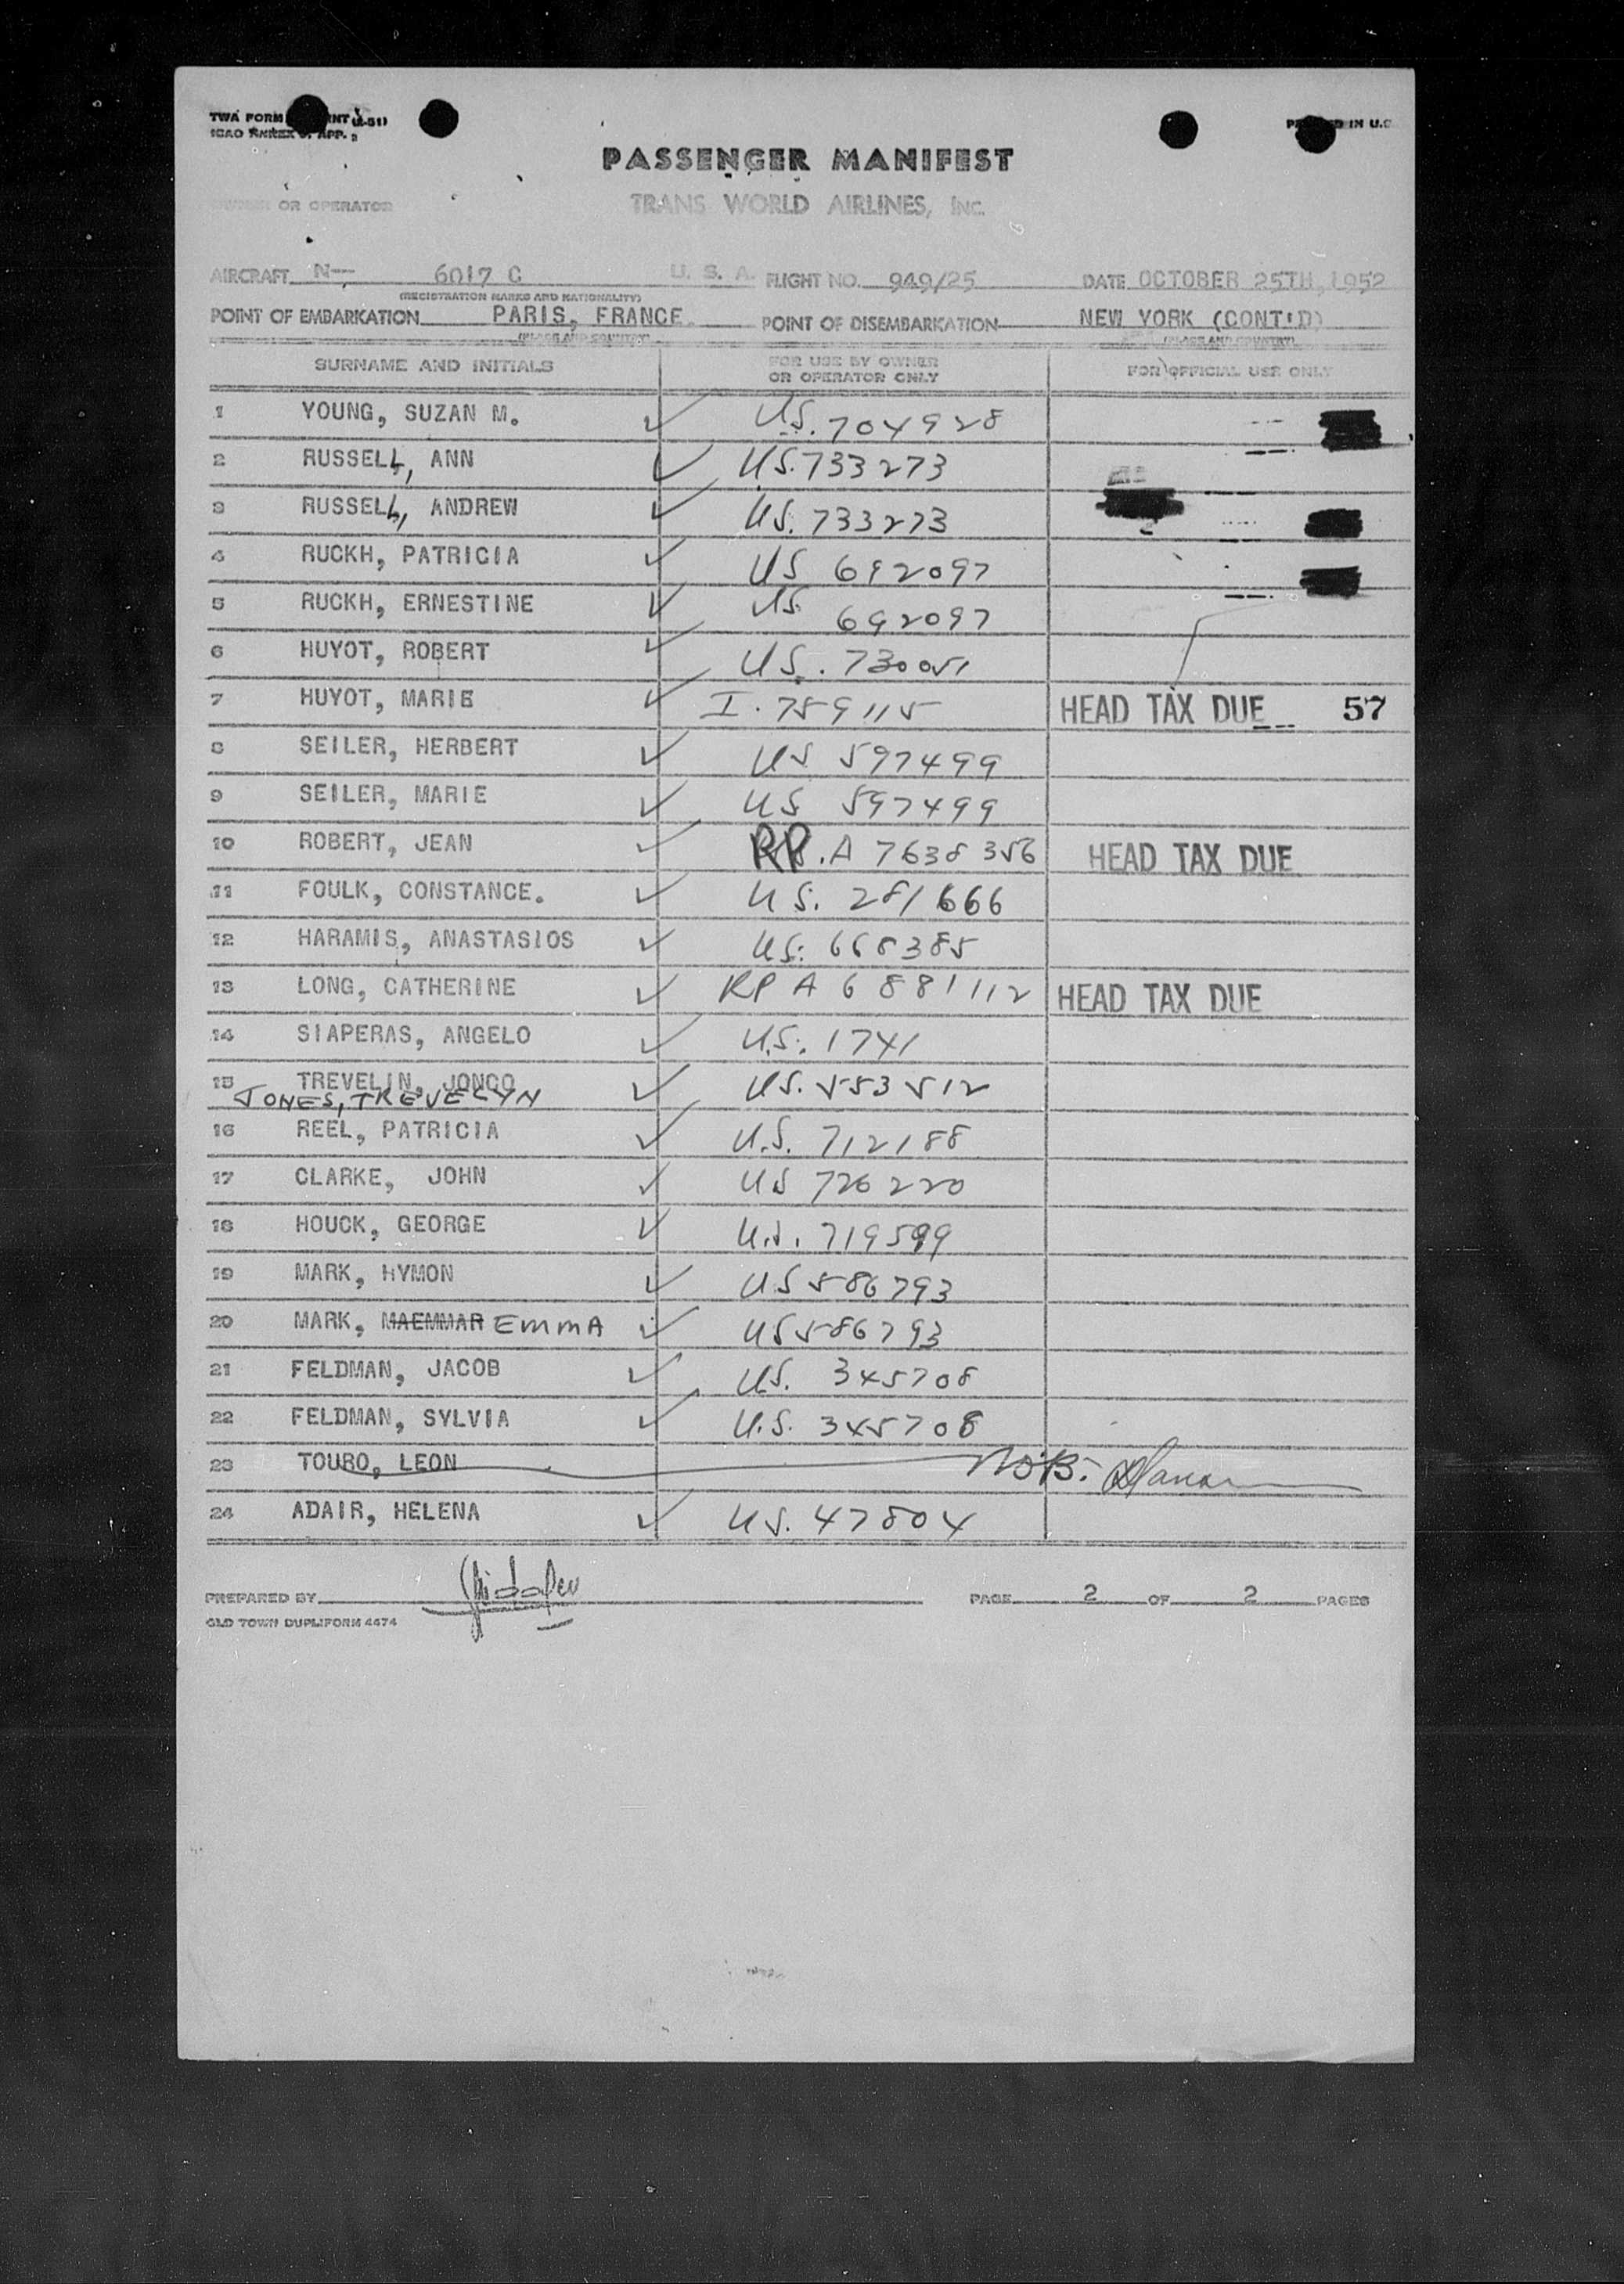 TWA FORM
ICAO ANNEX 9, APP. 2
IN U.S.
PASSENGER MANIFEST
OWNER OR OPERATOR TRANS WORLD AIRLINES, INC.
AIRCRAFT N- 6017 C U. S. A. FLIGHT NO. 949/25 DATE OCTOBER 25TH, 1952
(REGISTRATION MARKS AND NATIONALITY)
POINT OF EMBARKATION PARIS, FRANCE. POINT OF DISEMBARKATION NEW YORK (CONT'D)
(PLACE AND COUNTRY) (PLACE AND COUNTRY)
SURNAME AND INITIALS FOR USE BY OWNER OR OPERATOR ONLY FOR OFFICIAL USE ONLY
1 YOUNG, SUZAN M. ✓ US. 704928
2 RUSSELL, ANN ✓ US. 733273
3 RUSSELL, ANDREW ✓ US. 733273
4 RUCKH, PATRICIA ✓ US 692097
5 RUCKH, ERNESTINE ✓ US 692097
6 HUYOT, ROBERT ✓ US. 730051
7 HUYOT, MARIE ✓ I. 759115 HEAD TAX DUE 57
8 SEILER, HERBERT ✓ US 597499
9 SEILER, MARIE ✓ US 597499
10 ROBERT, JEAN ✓ RP. A 7638356 HEAD TAX DUE
11 FOULK, CONSTANCE. ✓ US. 281666
12 HARAMIS, ANASTASIOS ✓ US. 668385
13 LONG, CATHERINE ✓ RP A 6881112 HEAD TAX DUE
14 SIAPERAS, ANGELO ✓ U.S. 1741
15 TREVELIN, JONCO ✓ US. 553512
JONES, TREVELYN
16 REEL, PATRICIA ✓ U.S. 712188
17 CLARKE, JOHN ✓ US 726220
18 HOUCK, GEORGE ✓ U.S. 719599
19 MARK, HYMON ✓ US 586793
20 MARK, MAEMMAR EMMA ✓ US 586793
21 FELDMAN, JACOB ✓ US. 345708
22 FELDMAN, SYLVIA ✓ U.S. 345708
23 TOURO, LEON NOB.
24 ADAIR, HELENA ✓ US. 47804
PREPARED BY PAGE 2 OF 2 PAGES
OLD TOWN DUPLIFORM 4474